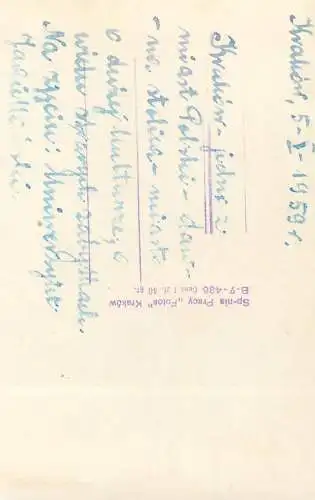 Kraków, 5-X-1959 r.
Kraków - jedno z
miast Polski - daw-
na stolica - miasto
o dużej kulturze, o
wielu starych zabytkach.
Na zdjęciu: Uniwersytet
Jagielloński
Sp-nia Pracy „Fotos" Kraków
B-7-486 Cena 1 zł. 80 gr.